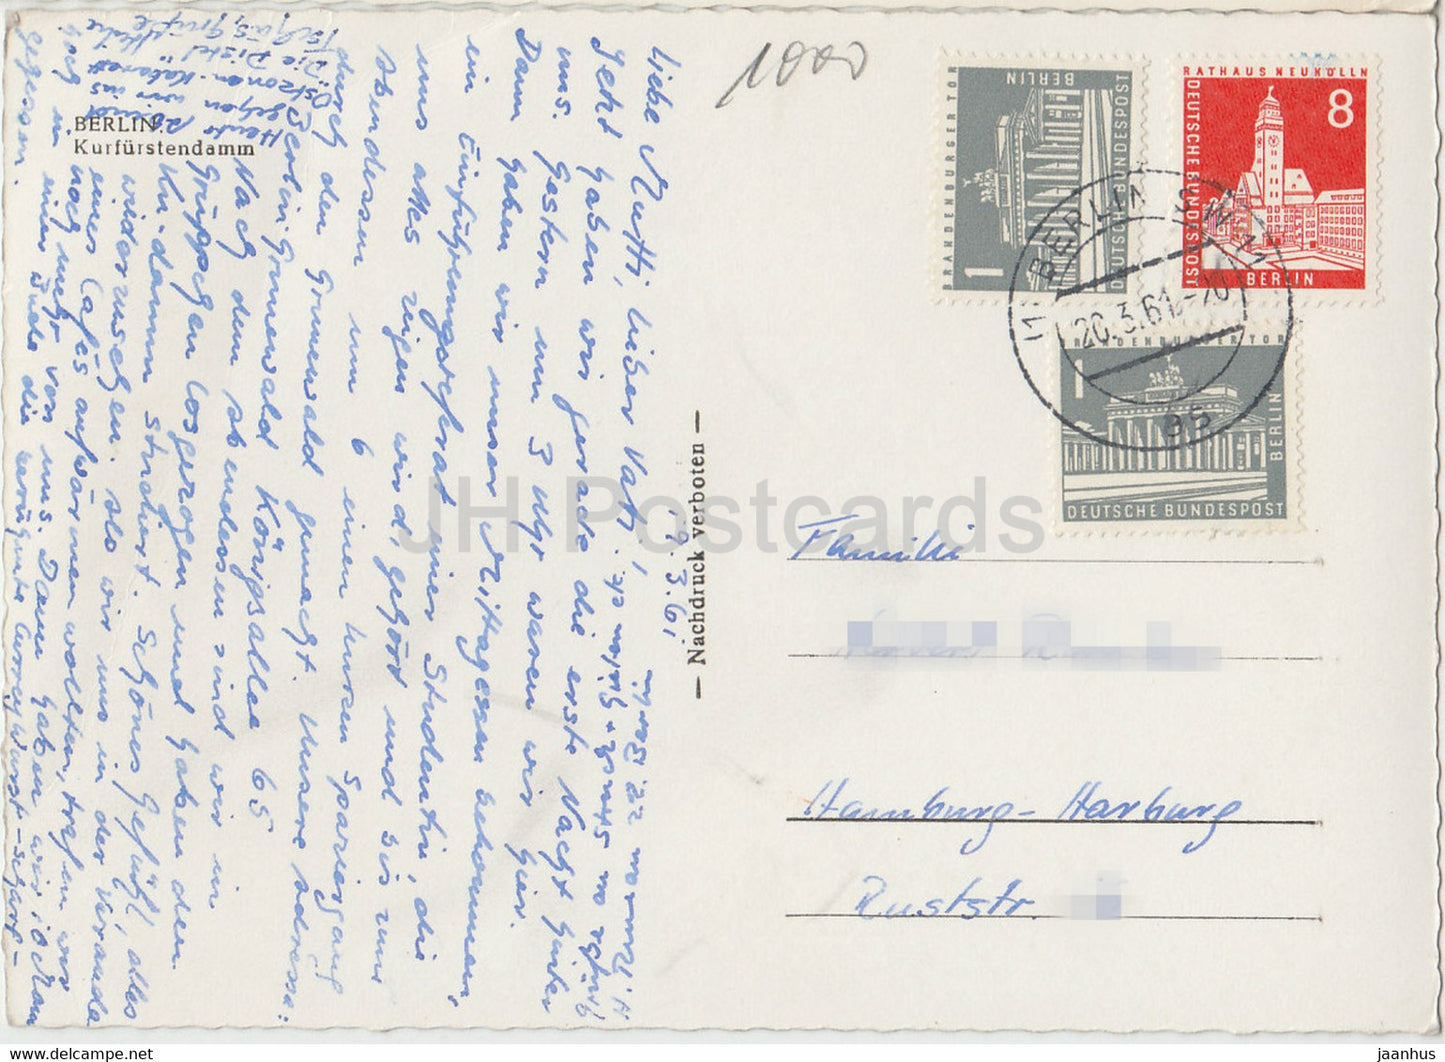 BERLIN.
Kurfürstendamm
1000
19.3.61
Liebe Mutti, lieber Vati!
Jetzt haben wir gerade die erste Nacht hinter
uns. Gestern um 3 Uhr waren wir hier.
Dann haben wir unser Mittagessen bekommen,
ein Einführungsreferat einer Studentin, die
uns alles zeigen wird, gehört und bis zum
Abendessen um 6 einen kurzen Spaziergang
durch den Grunewald gemacht. Unsere Adresse:
Berlin-Grunewald Königsallee 65
Nach dem Abendessen sind wir in
Grüppchen losgezogen und haben den
Ku-damm studiert. Schönes Gefühl, alles
wiederzusehen. Als wir uns in der Veranda
eines Cafés aufwärmen wollten, trafen wir
noch mehr von uns. Dann haben wir
in einer Bude die berühmte Currywurst
gegessen.
Heute Abend
gehen wir ins
Ostzonen-Kabarett
"Die Distel"
Tschüs, Grüße
— Nachdruck verboten —
BRANDENBURGER TOR
1
BERLIN
DEUTSCHE BUNDESPOST
RATHAUS NEUKÖLLN
8
DEUTSCHE BUNDESPOST
BERLIN
BRANDENBURGER TOR
1
BERLIN
DEUTSCHE BUNDESPOST
BERLIN SW
20.3.61.-20
Familie
Hamburg-Harburg
Ruststr.
JH Postcards
delcampe.net
jaanhus